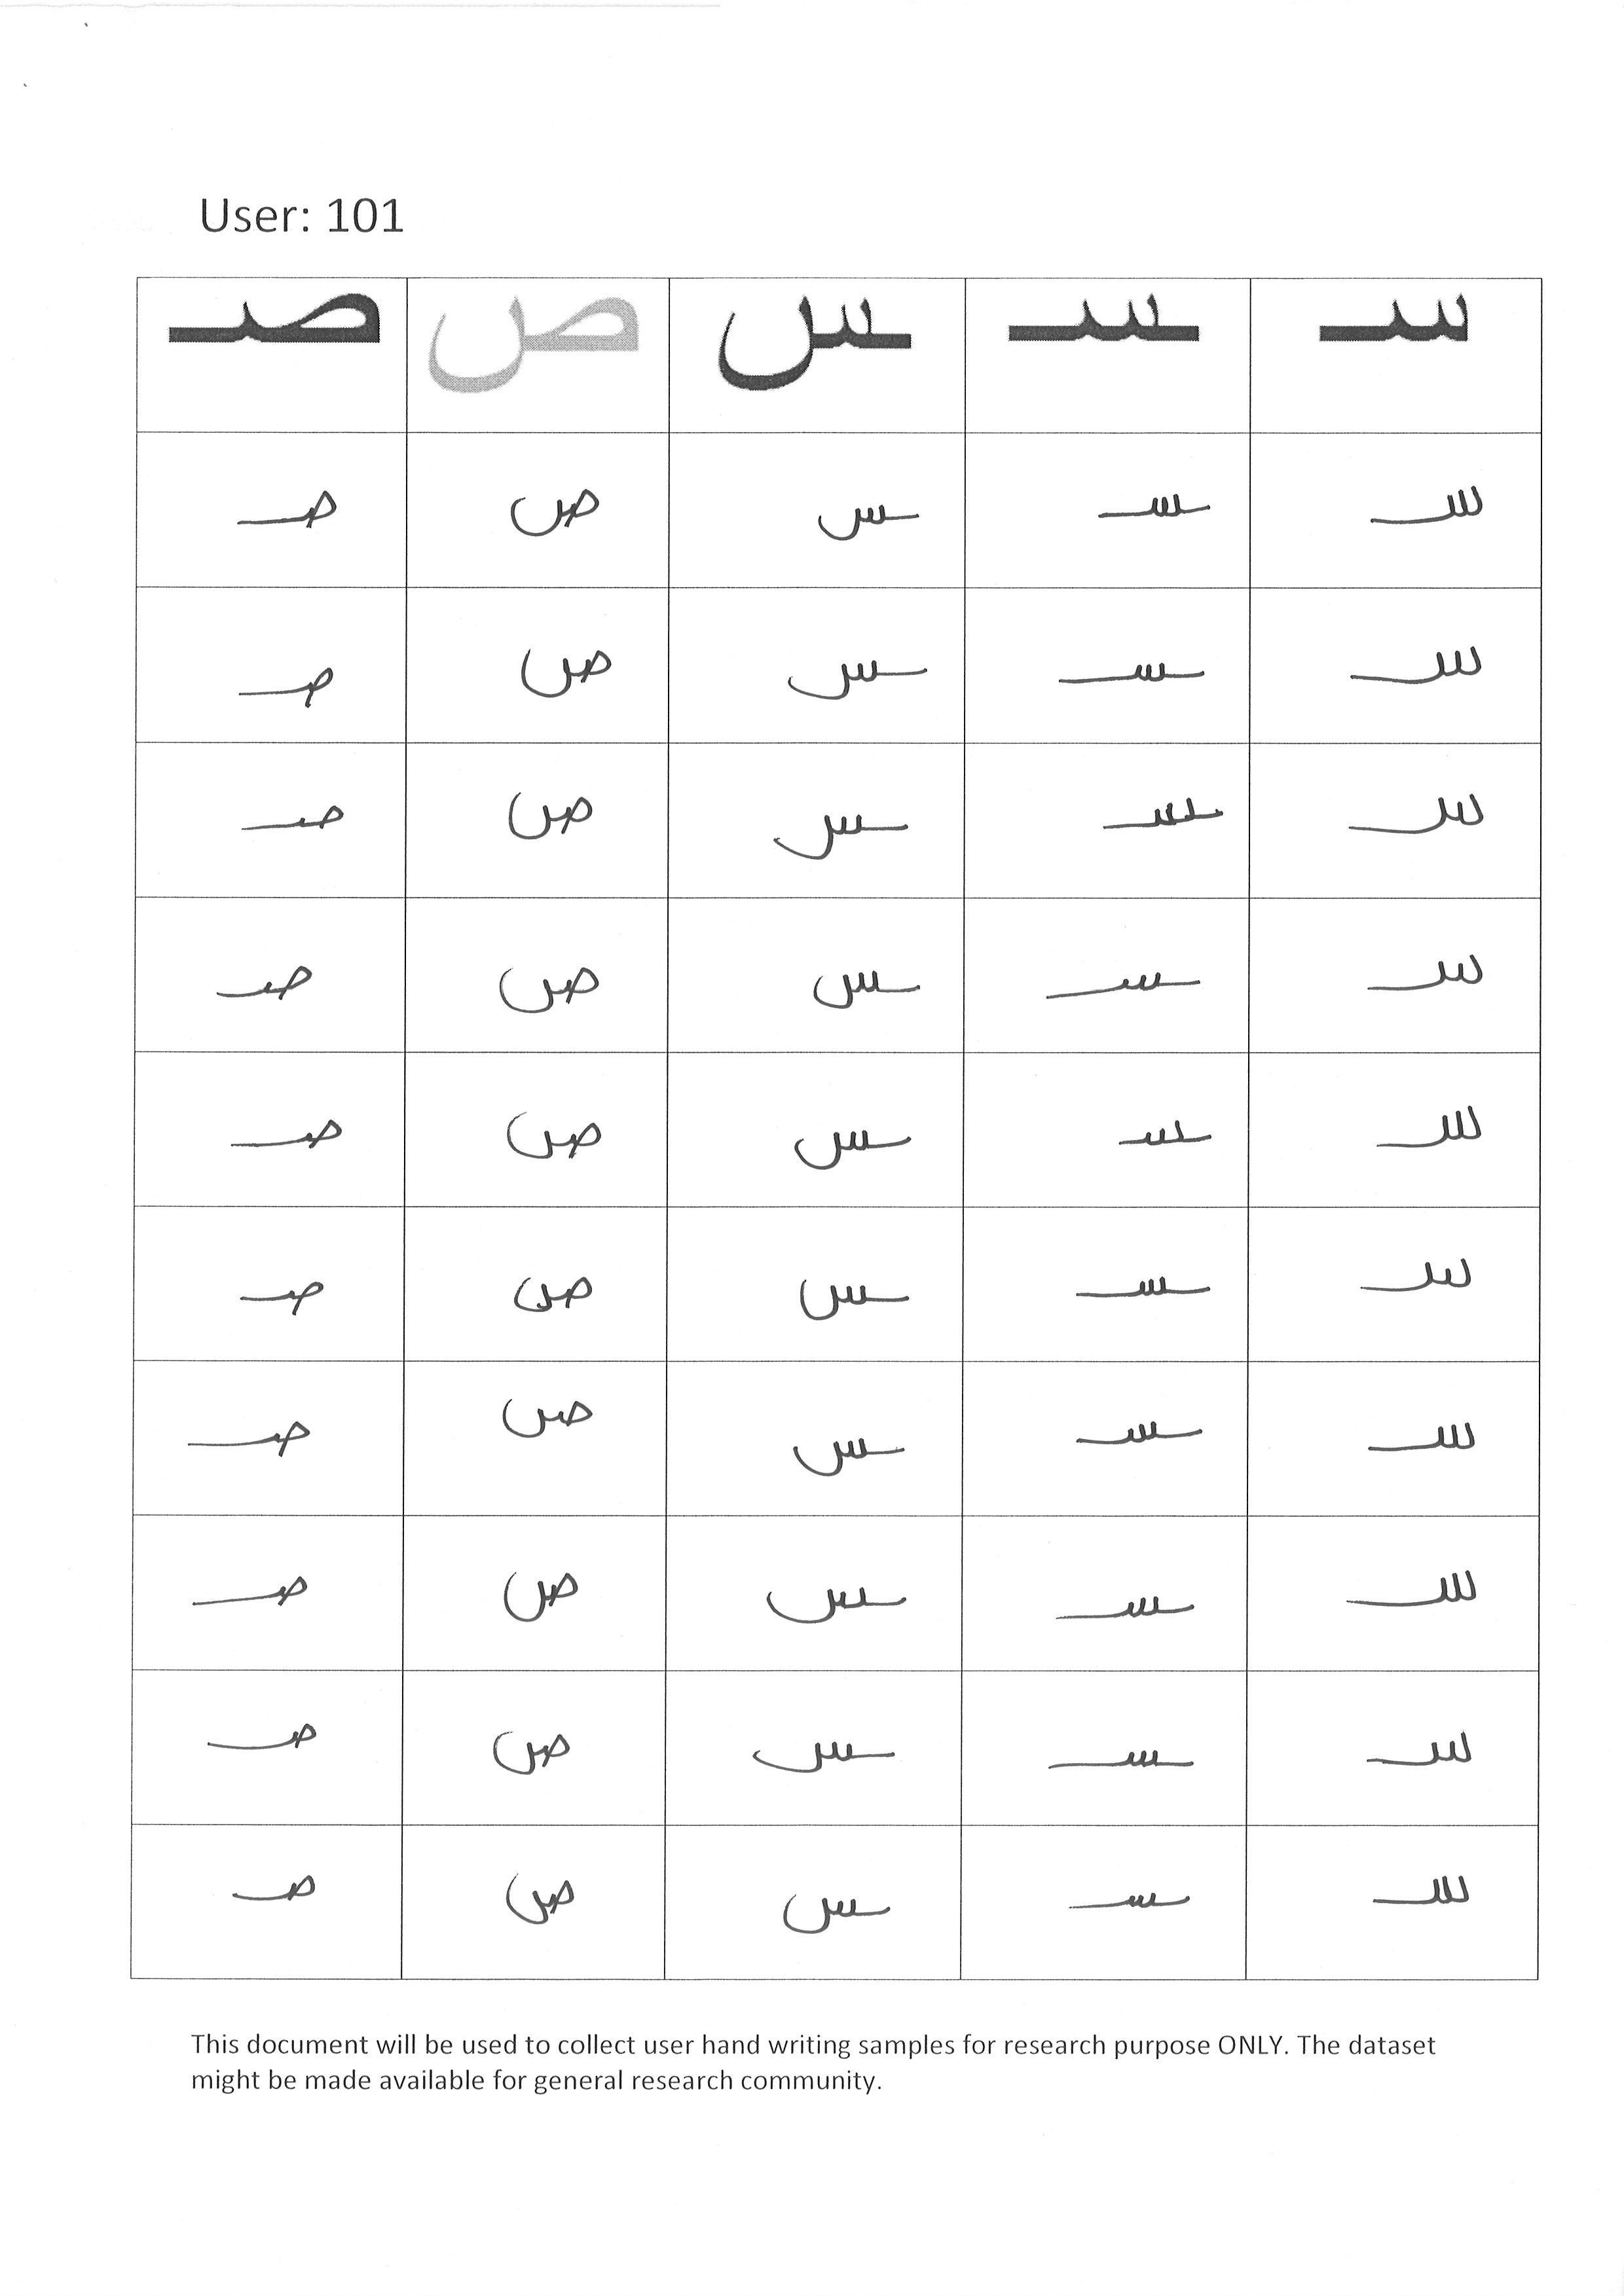 User: 101
سـ ـسـ ـس ص صـ
سـ ـسـ ـس ص صـ
سـ ـسـ ـس ص صـ
سـ ـسـ ـس ص صـ
سـ ـسـ ـس ص صـ
سـ ـسـ ـس ص صـ
سـ ـسـ ـس ص صـ
سـ ـسـ ـس ص صـ
سـ ـسـ ـس ص صـ
سـ ـسـ ـس ص صـ
سـ ـسـ ـس ص صـ
This document will be used to collect user hand writing samples for research purpose ONLY. The dataset
might be made available for general research community.